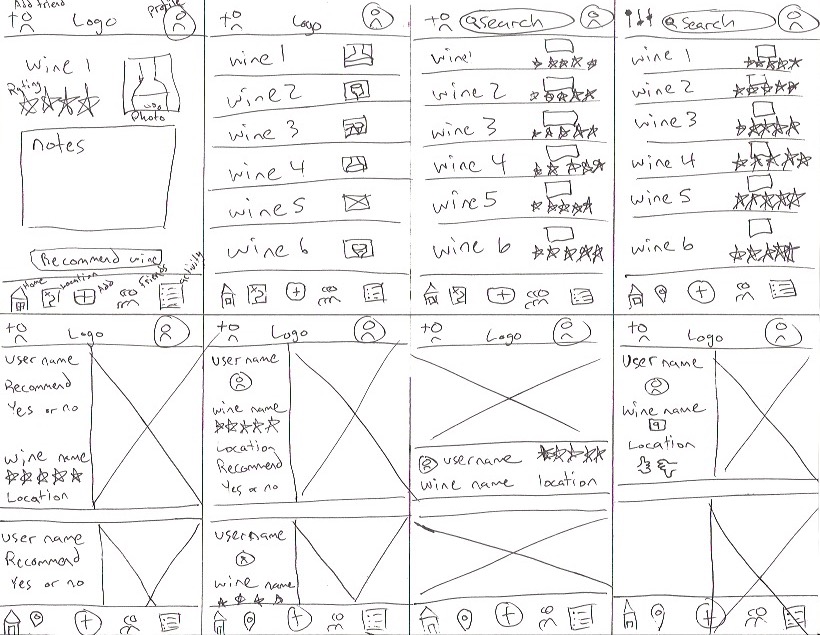 Add friend
Profile
Logo
Wine 1
Rating
Photo
notes
Recommend wine
Home
Location
Add
Friends
activity
Logo
wine 1
wine 2
wine 3
wine 4
wine 5
wine 6
Search
wine 1
wine 2
wine 3
wine 4
wine 5
wine 6
Search
wine 1
wine 2
wine 3
wine 4
wine 5
wine 6
Logo
User name
Recommend
Yes or no
wine name
Location
User name
Recommend
Yes or no
Logo
User name
wine name
Location
Recommend
Yes or no
username
wine name
Logo
username
wine name location
Logo
User name
wine name
Location